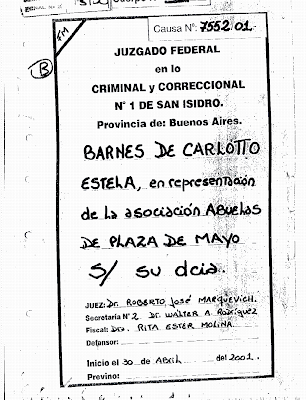 Causa Nº: 7552.01.
FM
B
JUZGADO FEDERAL
en lo
CRIMINAL y CORRECCIONAL
Nº 1 DE SAN ISIDRO.
Provincia de: Buenos Aires.
BARNES DE CARLOTTO
ESTELA, en representación
de la asociación ABUELAS
DE PLAZA DE MAYO
S/ su dcia.
JUEZ: Dr. ROBERTO JOSÉ MARQUEVICH.
Secretaria Nº 2 Dr. WALTER A. Rodríguez
Fiscal: Dra. RITA ESTER MOLINA.
Defensor:
Inicio el 30 de Abril del 2001.
Previno: